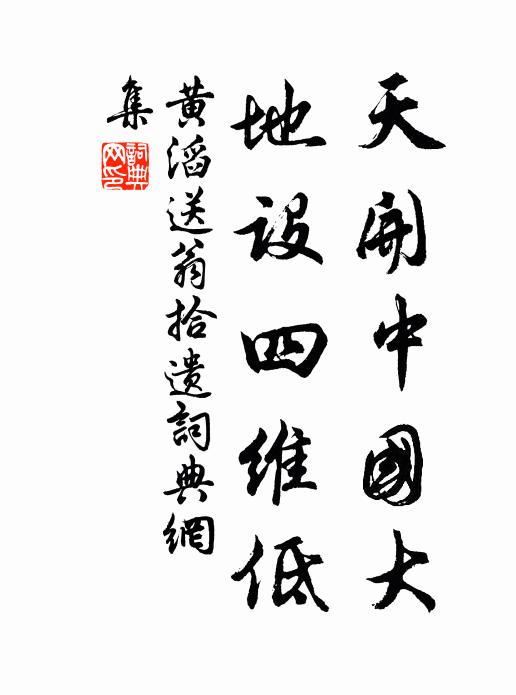 天開中國大
地設四維低
黃滔送翁拾遺詞典網
集
詞典網印